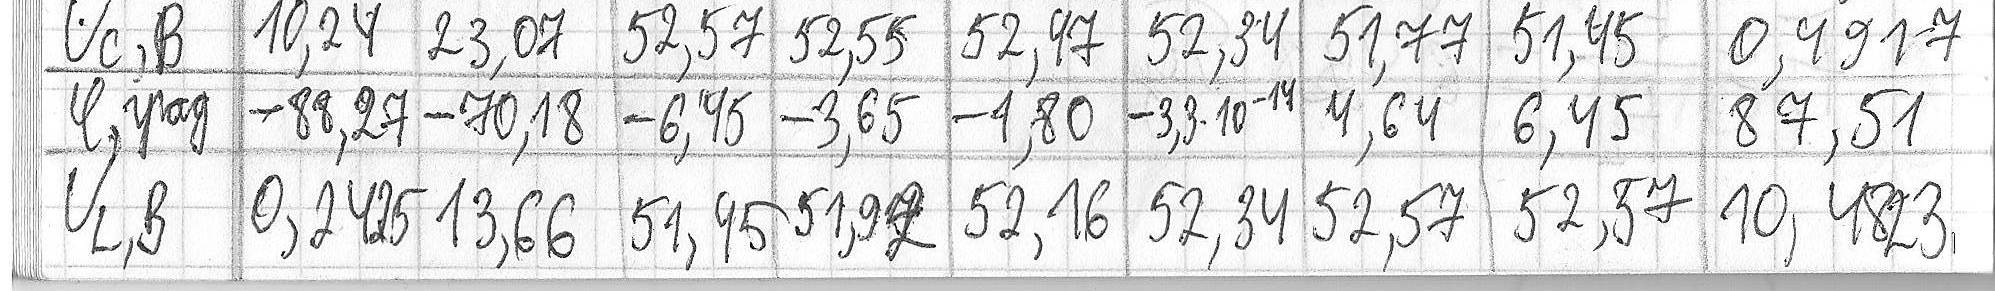 U_C, В 10,24 23,07 52,57 52,55 52,47 52,34 51,77 51,45 0,4917
φ, град -88,27 -70,18 -6,45 -3,65 -1,80 -3,3·10⁻¹⁴ 4,64 6,45 87,51
U_L, В 0,2425 13,66 51,45 52,16 52,34 52,57 52,57 10,4823